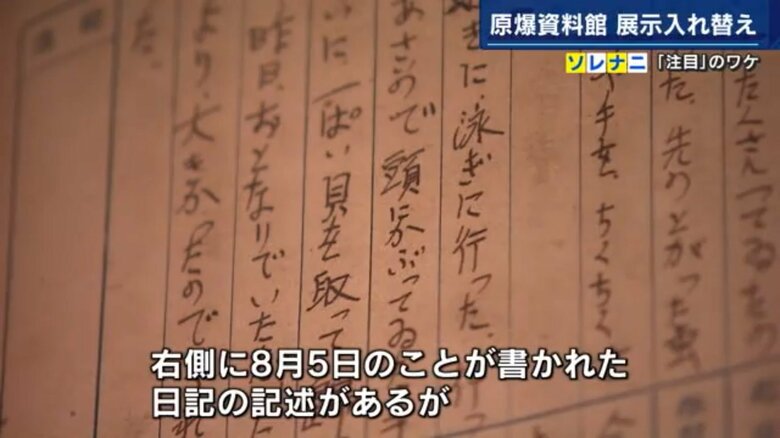 原爆資料館 展示入れ替え
ソレナニ 「注目」のワケ
たくさんってゐたの
た。先のとがった虫
手を、ちくちく
きに、泳ぎに行った。行っ
あさので頭にかぶってゐ
いに、一ぱい貝を取って
昨日、おとなりでいた
より、大きかったので
た。
右側に8月5日のことが書かれた
日記の記述があるが